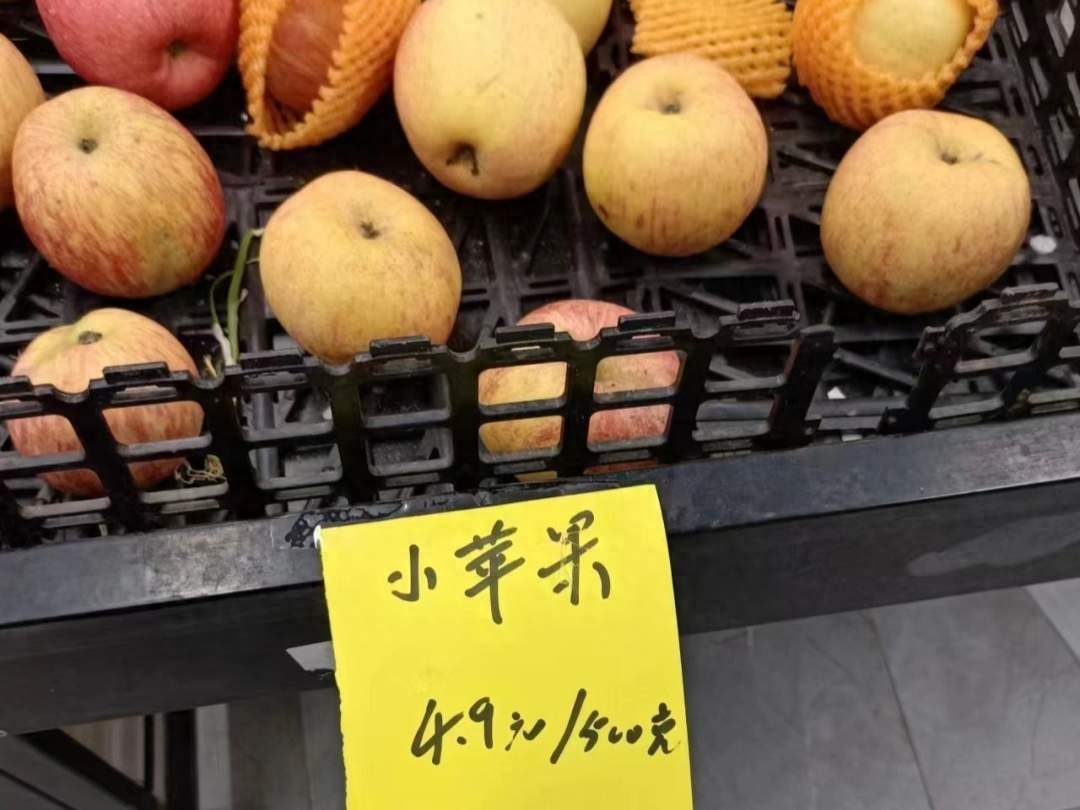 小苹果
4.9元/500克